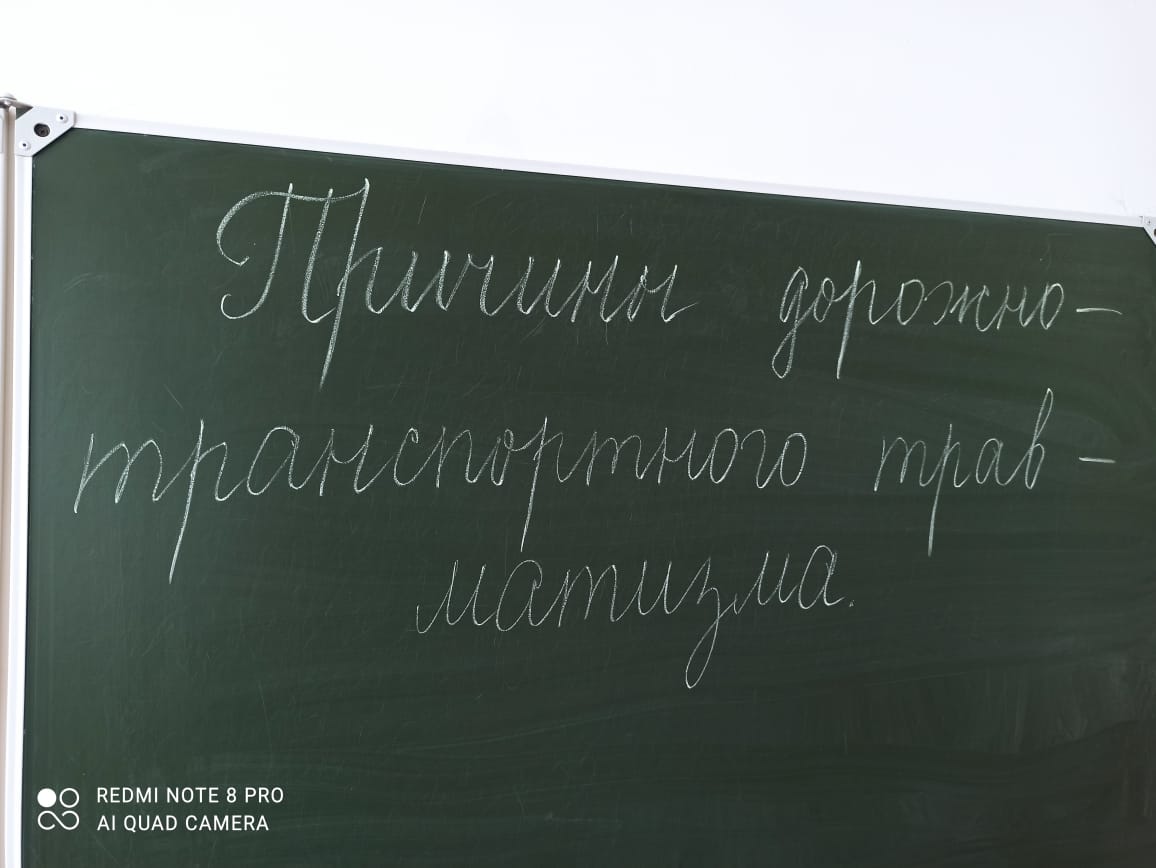 Причины дорожно-
транспортного трав-
матизма.
REDMI NOTE 8 PRO
AI QUAD CAMERA